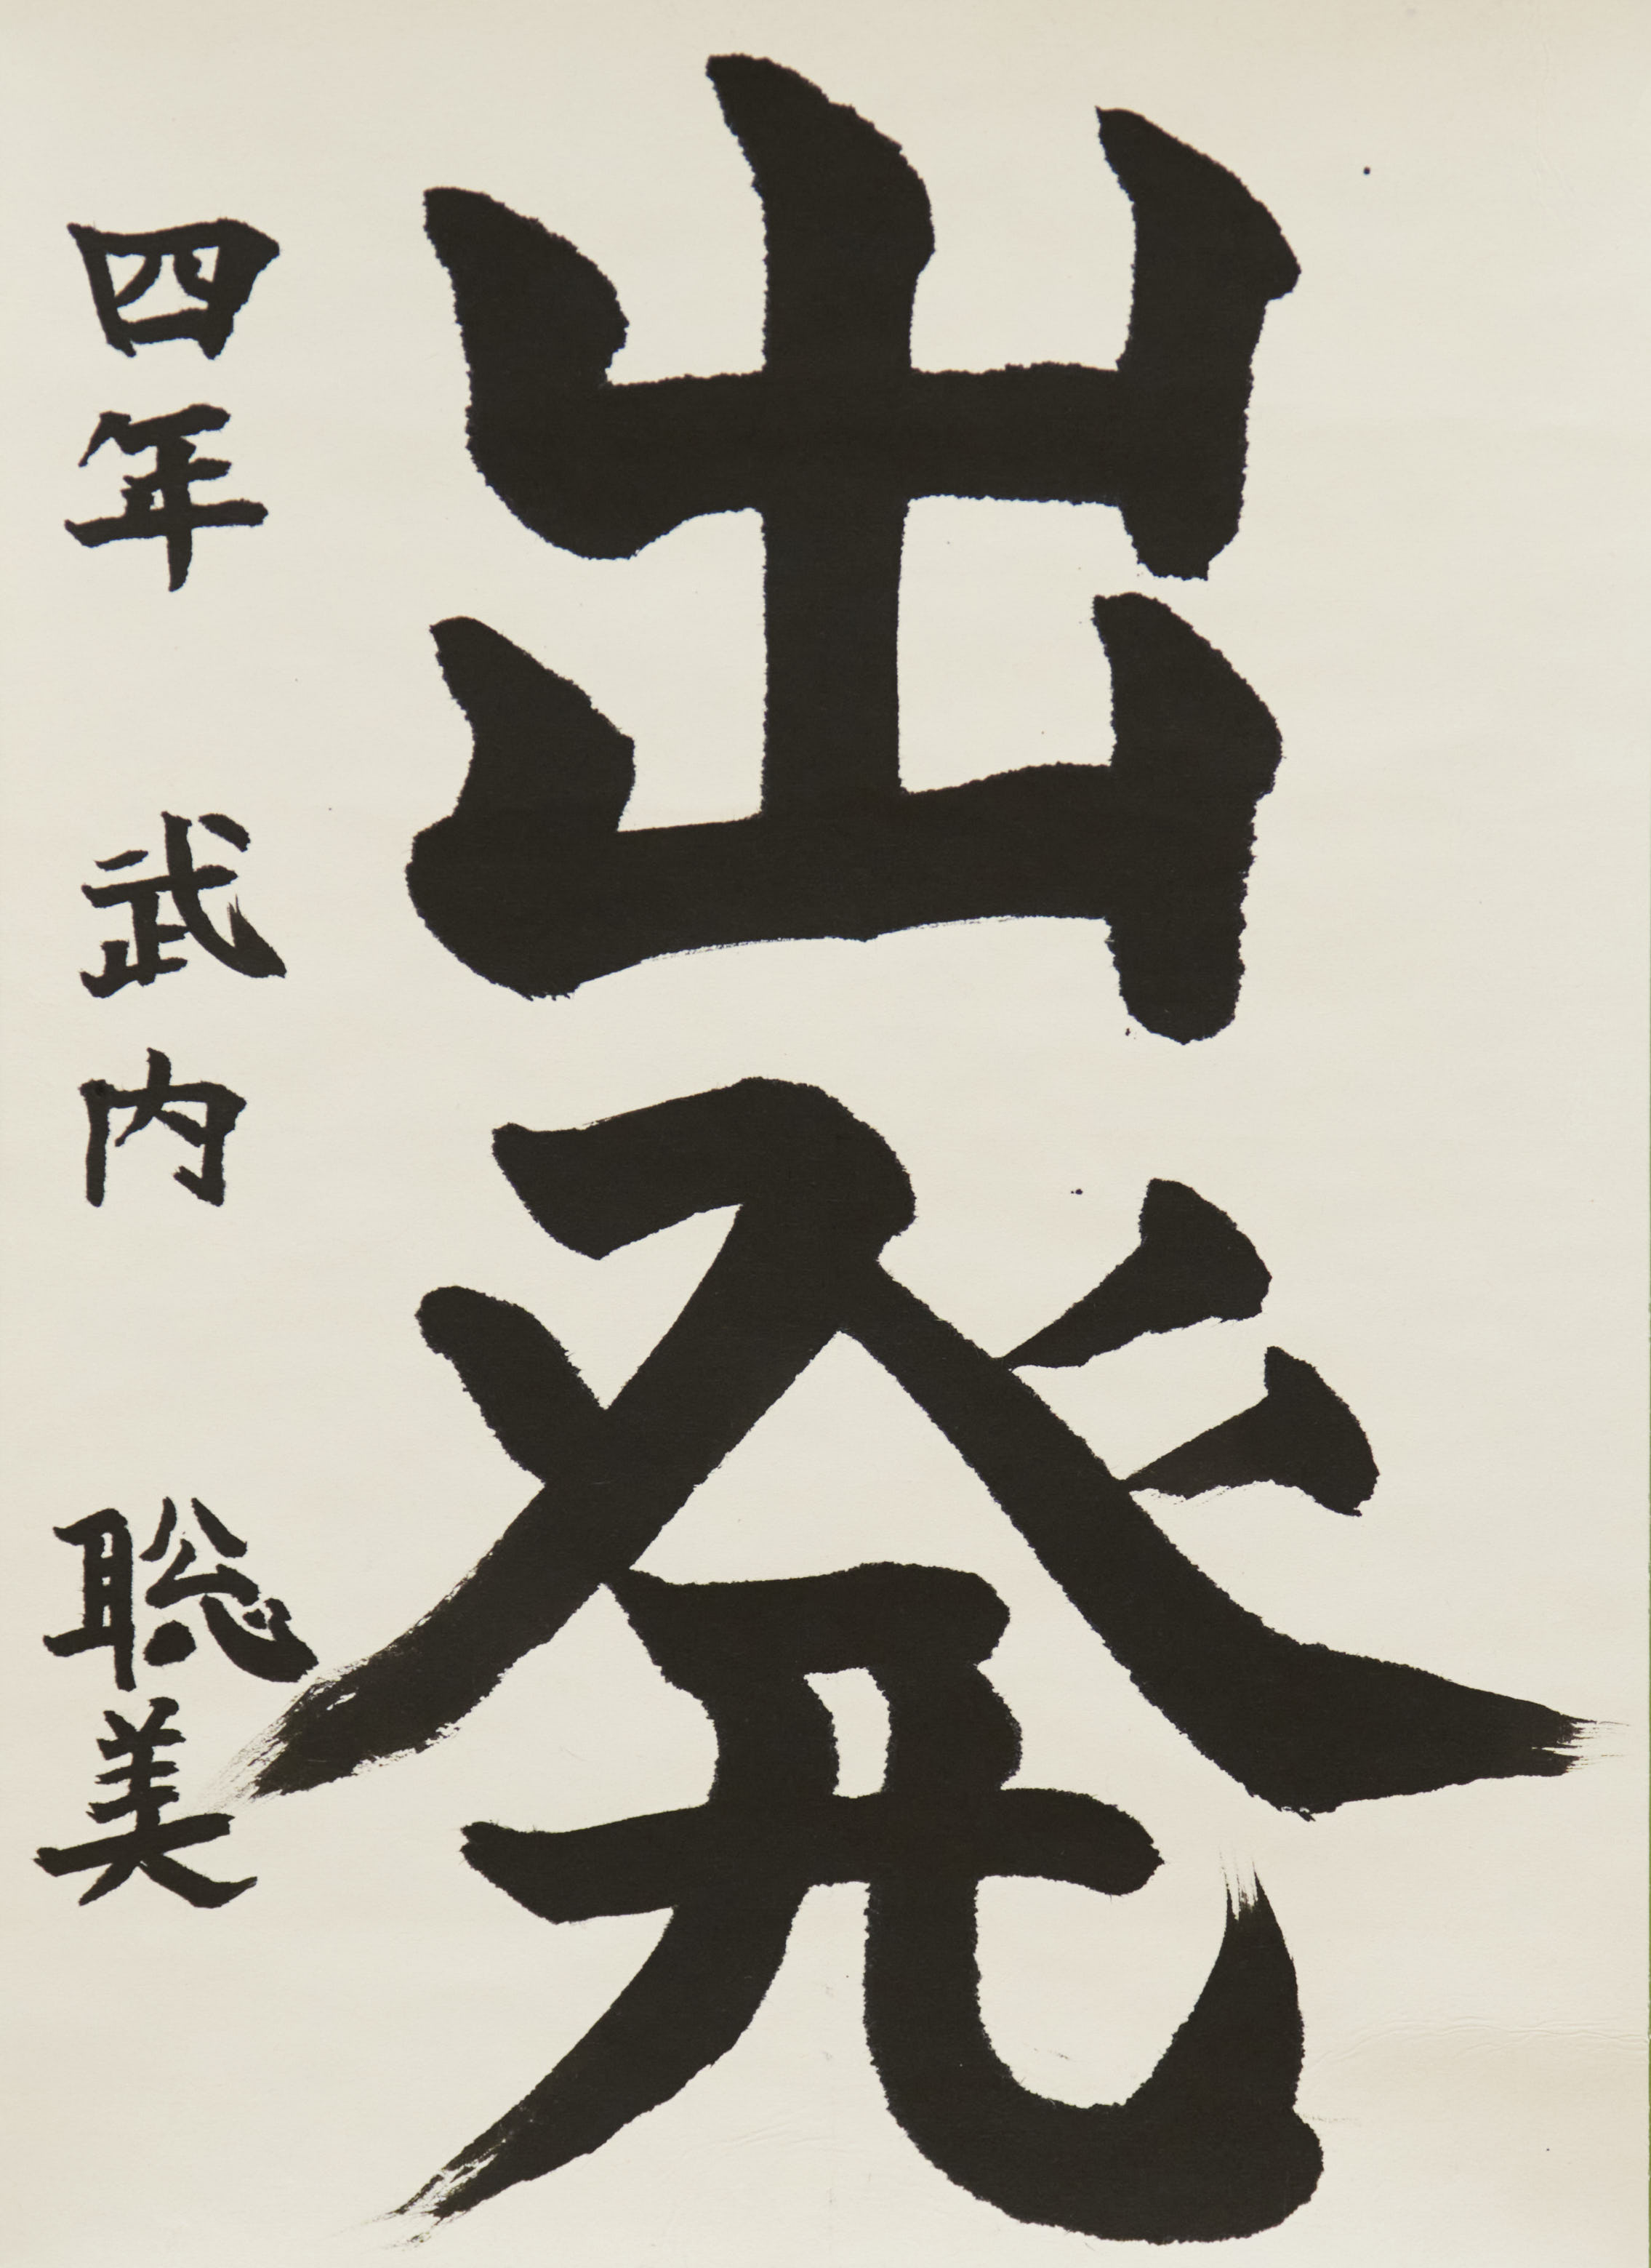 出発
四年 武内 聡美